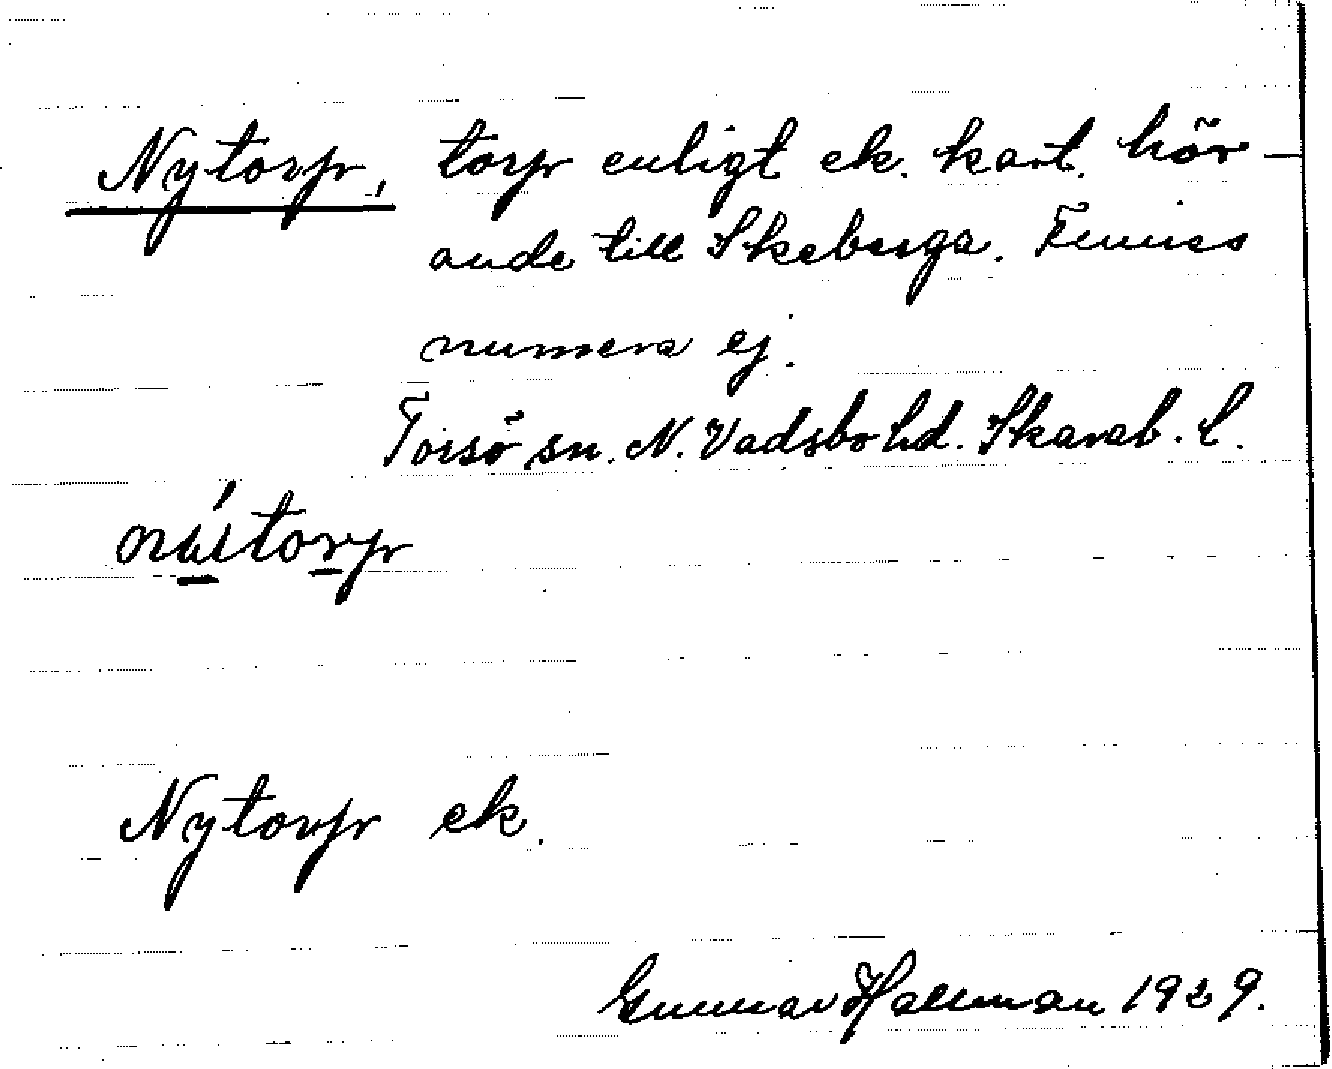 Nytorp, torp enligt ek. kart. hör-
ande till Skeberga. Finnes
numera ej.
Torsö sn. N. Vadsbo hd. Skarab. l.
Nytorp ek.
Gunnar Hallman 1929.